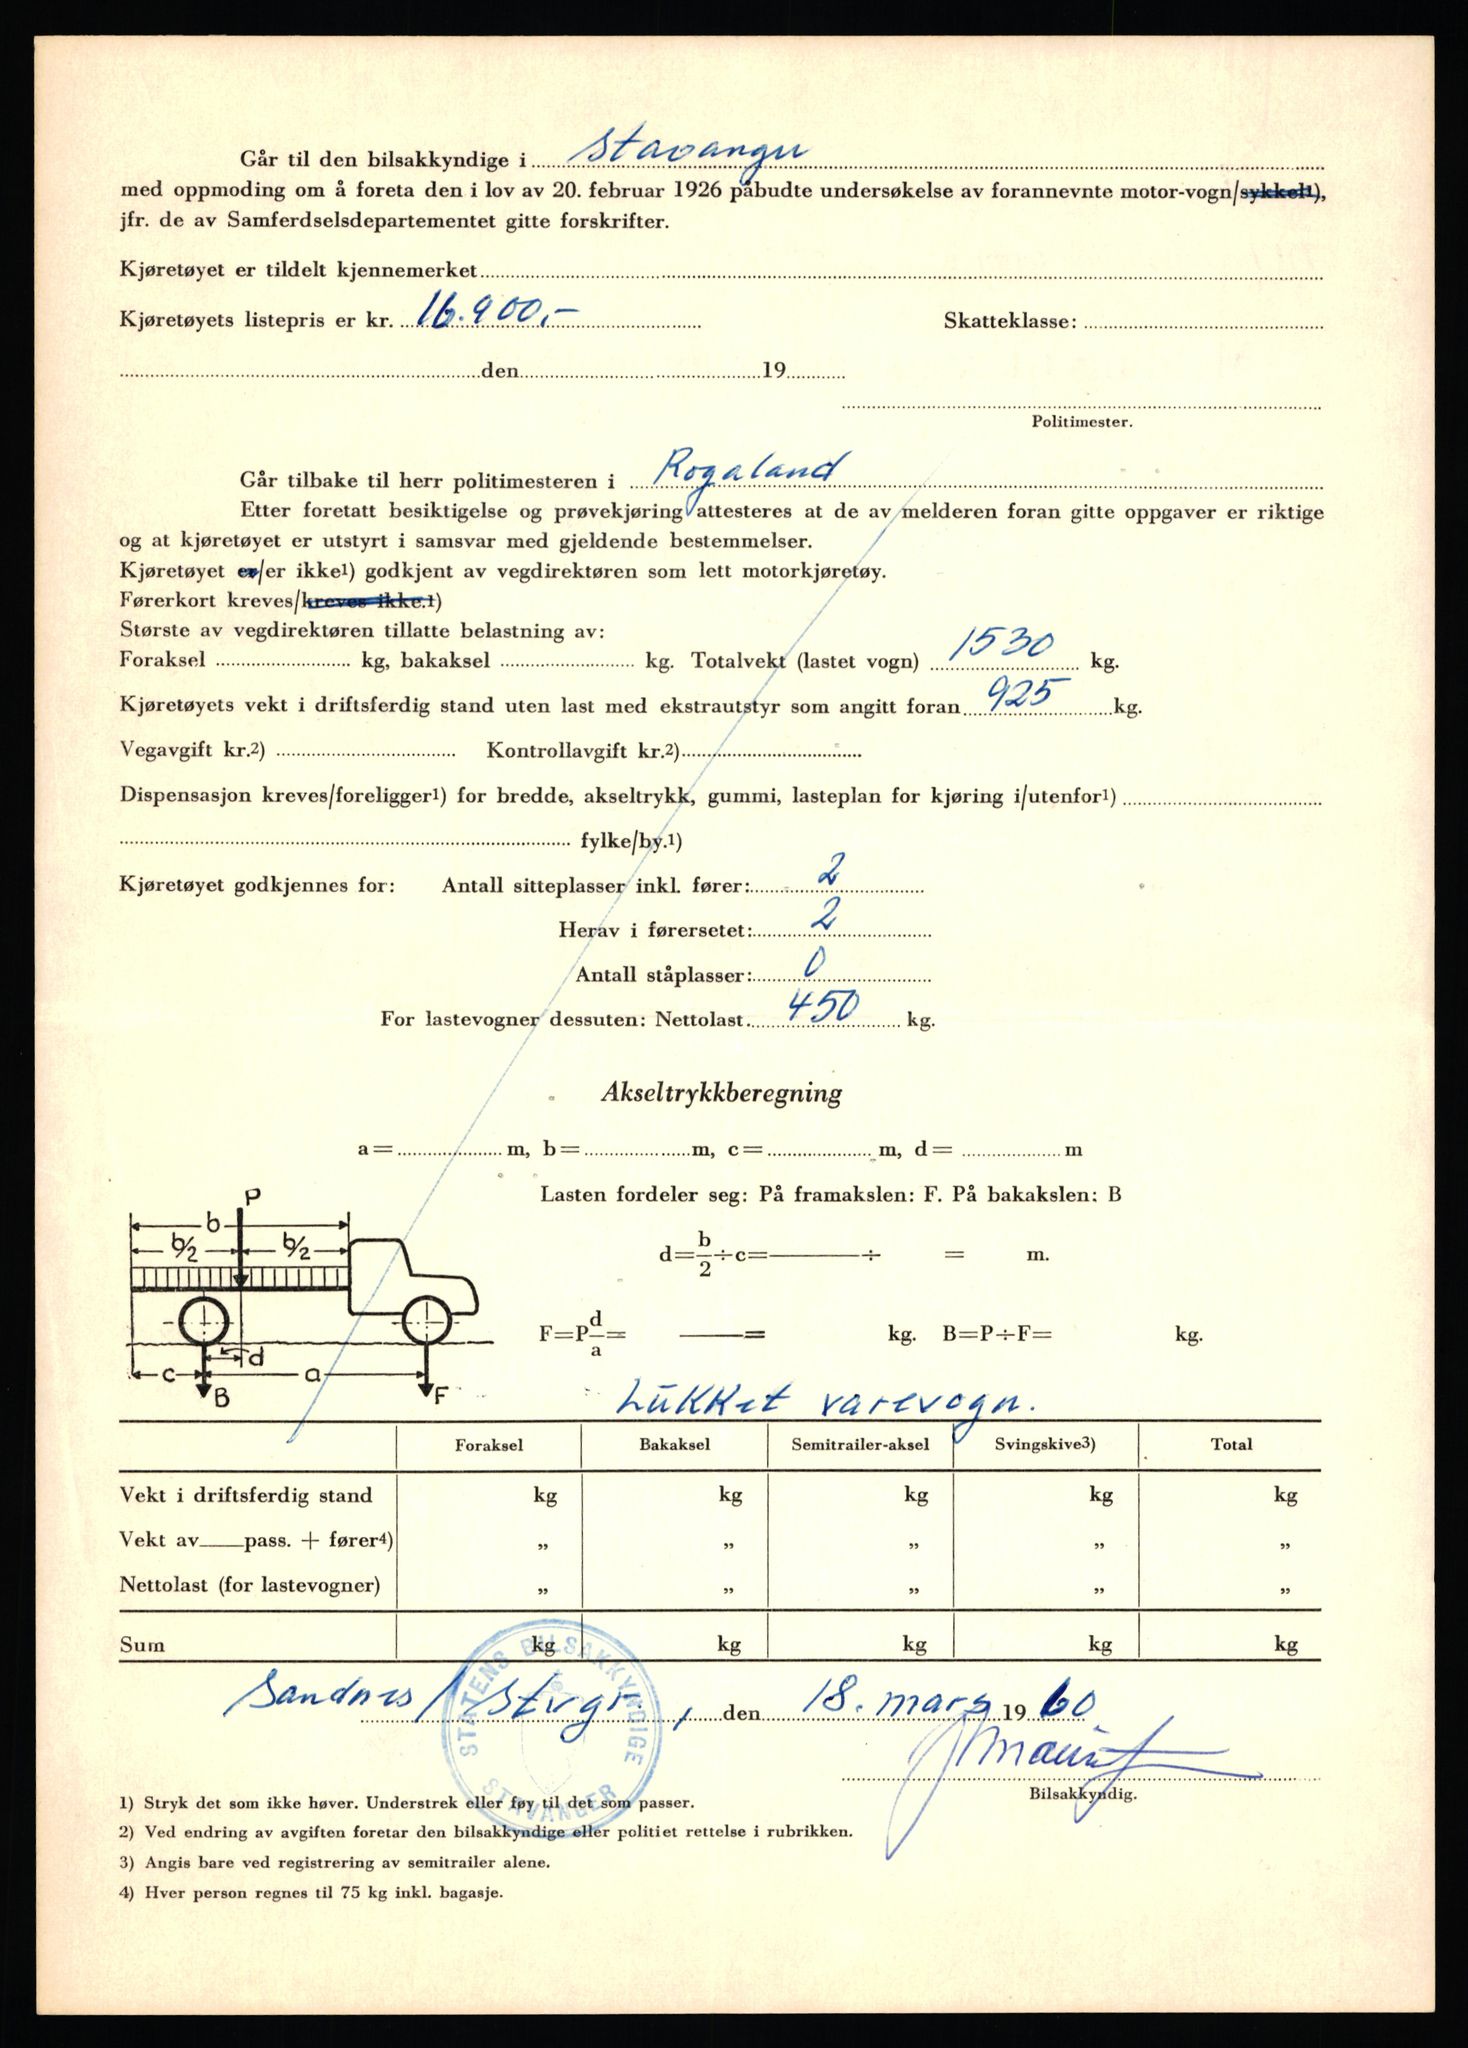 Går til den bilsakkyndige i Stavanger
med oppmoding om å foreta den i lov av 20. februar 1926 påbudte undersøkelse av forannevnte motor-vogn/sykkel1),
jfr. de av Samferdselsdepartementet gitte forskrifter.
Kjøretøyet er tildelt kjennemerket
Kjøretøyets listepris er kr. 16.900,- Skatteklasse:
den 19
Politimester.
Går tilbake til herr politimesteren i Rogaland
Etter foretatt besiktigelse og prøvekjøring attesteres at de av melderen foran gitte oppgaver er riktige
og at kjøretøyet er utstyrt i samsvar med gjeldende bestemmelser.
Kjøretøyet er/er ikke1) godkjent av vegdirektøren som lett motorkjøretøy.
Førerkort kreves/kreves ikke.1)
Største av vegdirektøren tillatte belastning av:
Foraksel kg, bakaksel kg. Totalvekt (lastet vogn) 1530 kg.
Kjøretøyets vekt i driftsferdig stand uten last med ekstrautstyr som angitt foran 925 kg.
Vegavgift kr.2) Kontrollavgift kr.2)
Dispensasjon kreves/foreligger1) for bredde, akseltrykk, gummi, lasteplan for kjøring i/utenfor1)
fylke/by.1)
Kjøretøyet godkjennes for: Antall sitteplasser inkl. fører: 2
Herav i førersetet: 2
Antall ståplasser: 0
For lastevogner dessuten: Nettolast 450 kg.
Akseltrykkberegning
a= m, b= m, c= m, d= m
Lasten fordeler seg: På framakslen: F. På bakakslen: B
P
b
b/2 b/2
d=b/2÷c= ÷ = m.
F=P d/a= = kg. B=P÷F= kg.
c d a
B F
Lukket varevogn.
Foraksel Bakaksel Semitrailer-aksel Svingskive3) Total
Vekt i driftsferdig stand kg kg kg kg kg
Vekt av pass. + fører4) „ „ „ „ „
Nettolast (for lastevogner) „ „ „ „ „
Sum kg kg kg kg kg
STATENS BILSAKKYNDIGE
STAVANGER
Sandnes / Stvgr., den 18. mars 1960
Bilsakkyndig.
1) Stryk det som ikke høver. Understrek eller føy til det som passer.
2) Ved endring av avgiften foretar den bilsakkyndige eller politiet rettelse i rubrikken.
3) Angis bare ved registrering av semitrailer alene.
4) Hver person regnes til 75 kg inkl. bagasje.